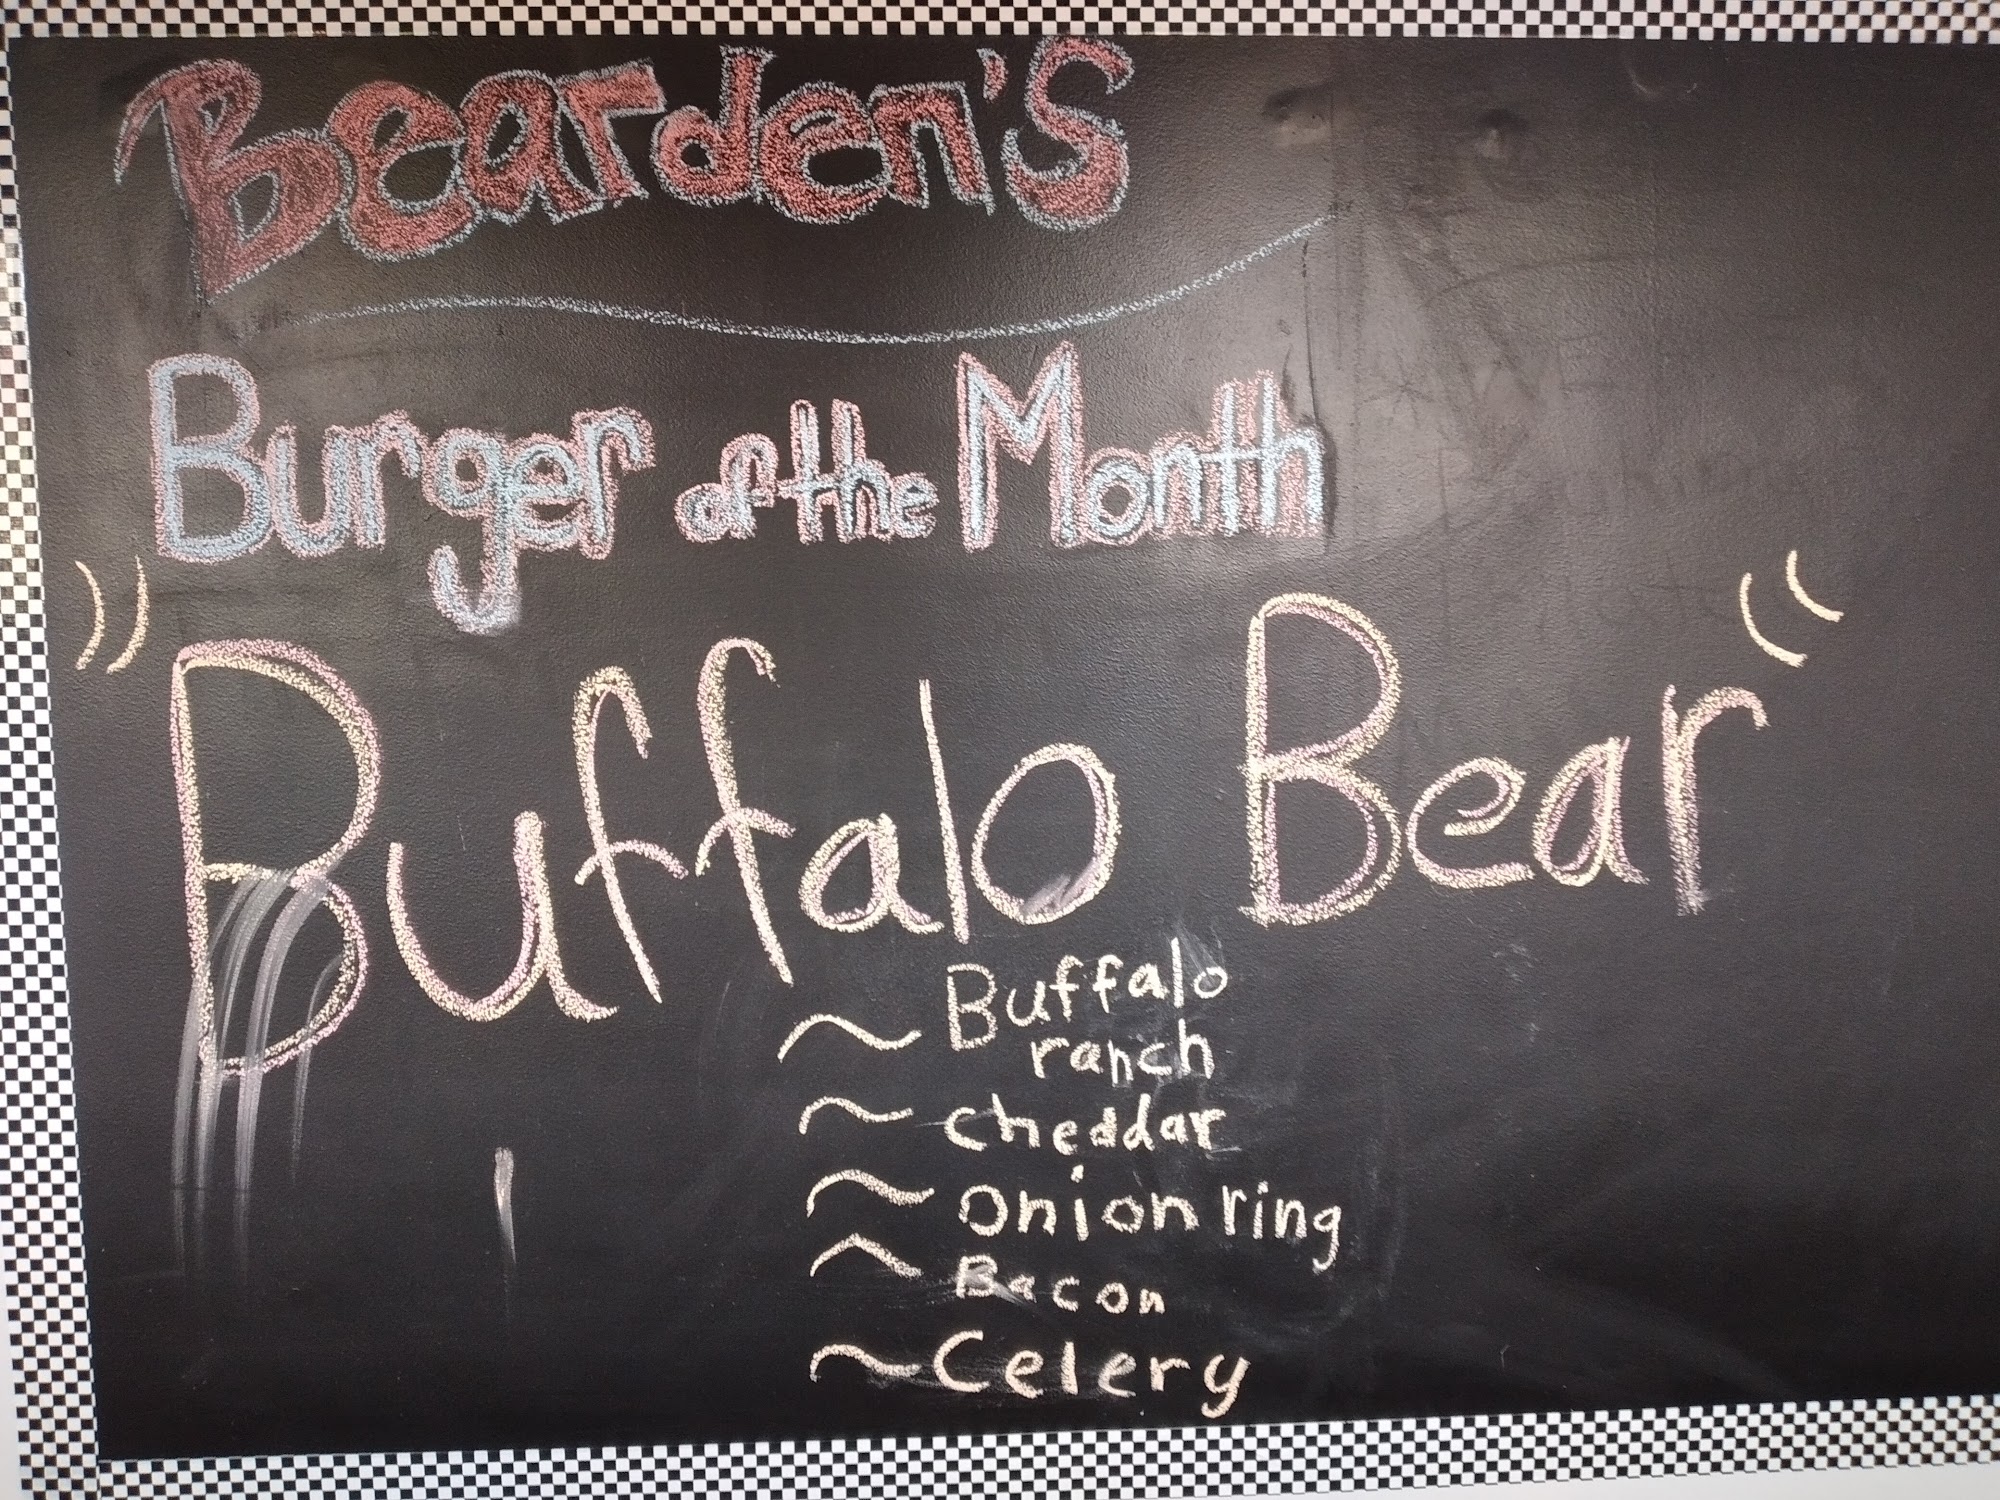 Bearden's
Burger of the Month
"Buffalo Bear"
~ Buffalo
ranch
~ cheddar
~ onion ring
~ Bacon
~ Celery